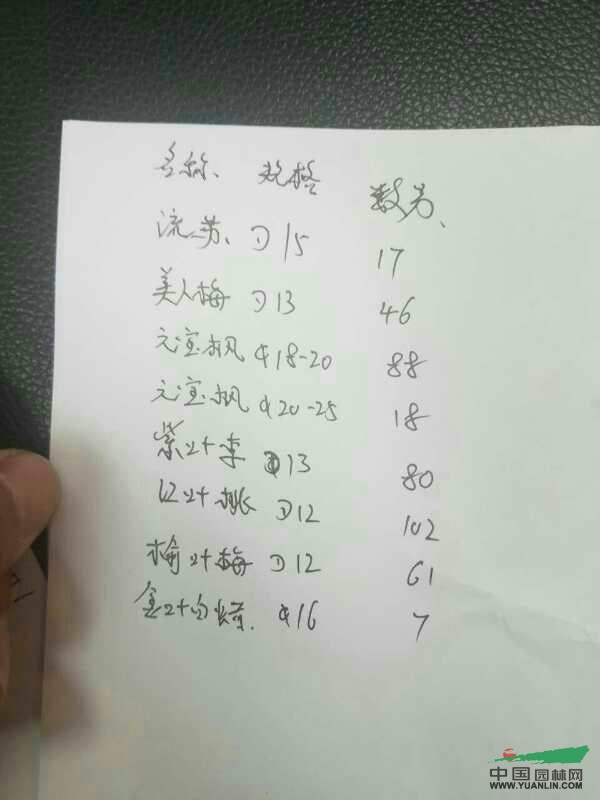 名称、 规格 数为、
流苏、 D15 17
美人梅 D13 46
元宝枫 φ18-20 88
元宝枫 φ20-25 18
紫叶李 D13 80
红叶桃 D12 102
榆叶梅 D12 61
金叶白蜡. φ16 7
中国园林网
WWW.YUANLIN.COM